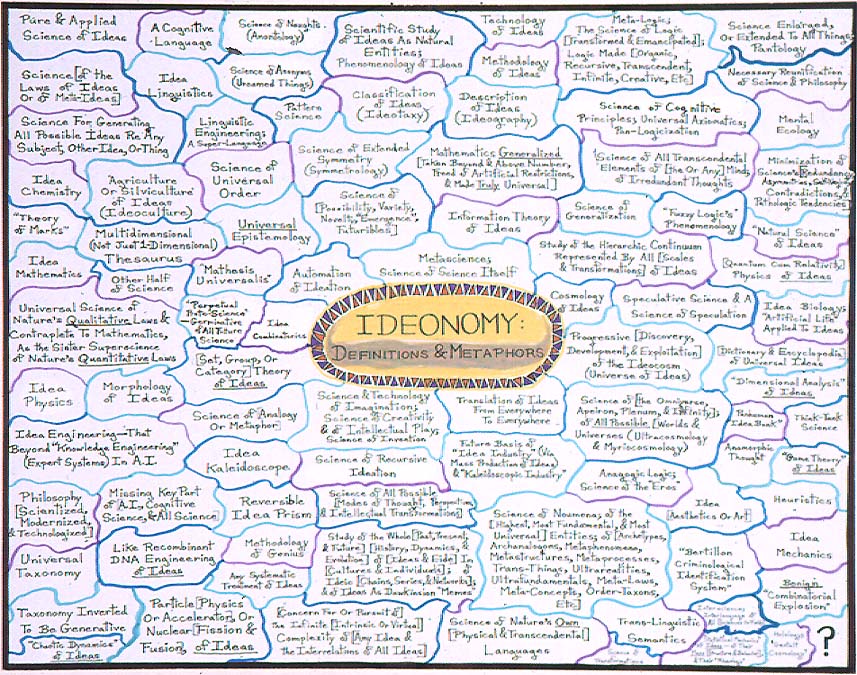 Pure & Applied
Science of Ideas
A Cognitive
Language
Science of Noughts
(Anontology)
Scientific Study
of Ideas As Natural
Entities;
Phenomenology of Ideas
Technology
of Ideas
Meta-Logic;
The Science of Logic
[Transformed & Emancipated];
Logic Made [Organic,
Recursive, Transcendent,
Infinite, Creative, Etc]
Science Enlarged,
Or Extended To All Things;
Pantology
Science [of the
Laws of Ideas
Or of Meta-Ideas]
Idea
Linguistics
Science of Anonyms
(Unnamed Things)
Methodology
of Ideas
Necessary Reunification
of Science & Philosophy
Classification
of Ideas
(Ideotaxy)
Description
of Ideas
(Ideography)
Pattern
Science
Science of Cognitive
Principles; Universal Axiomatics;
Pan-Logicization
Mental
Ecology
Science For Generating
All Possible Ideas Re Any
Subject, Other Idea, Or Thing
Linguistic
Engineering;
A Super-Language
Science of Extended
Symmetry
(Symmetrology)
Mathematics Generalized
[Taken Beyond & Above Number,
Freed of Artificial Restrictions,
& Made Truly Universal]
Science of All Transcendental
Elements of [the Or Any] Mind;
of Irredundant Thoughts
Minimization of
Science's [Redundancy,
Contradictions, &
Pathologic Tendencies]
Idea
Chemistry
Agriculture
Or Silviculture
of Ideas
(Ideoculture)
Science of
Universal
Order
Science of
[Possibility, Variety,
Novelty, Emergence,
Futuribles]
Information Theory
of Ideas
Science of
Generalization
"Fuzzy Logic's"
Phenomenology
"Natural Science"
of Ideas
"Theory
of Marks"
Multidimensional
(Not Just 1-Dimensional)
Thesaurus
Universal
Epistemology
Metascience;
Science of Science Itself
Study of the Hierarchic Continuum
Represented By All [Scales
& Transformations] of Ideas
[Quantum Cum Relativity]
Physics of Ideas
Idea
Mathematics
Other Half
of Science
"Mathesis
Universalis"
Automation
of Ideation
Cosmology
of Ideas
Speculative Science & A
Science of Speculation
Idea Biology;
"Artificial Life"
Applied To Ideas
Universal Science of
Nature's Qualitative Laws &
Contraplete To Mathematics,
As the Sister Superscience
of Nature's Quantitative Laws
"Perpetual
Proto-Science"
Germinative
of All Future
Science
Idea
Combinatorics
IDEONOMY:
DEFINITIONS & METAPHORS
Progressive [Discovery,
Development, & Exploitation]
of the Ideocosm
(Universe of Ideas)
[Dictionary & Encyclopedia]
of Universal Ideas
[Set, Group, Or
Category] Theory
of Ideas
"Dimensional Analysis"
of Ideas
Idea
Physics
Morphology
of Ideas
Science & Technology
of Imagination;
Science of Creativity
& of Intellectual Play;
Science of Invention
Translation of Ideas
From Everywhere
To Everywhere
Science of [the Omniverse,
Apeiron, Plenum, & Infinity];
of All Possible [Worlds &
Universes] (Ultracosmology
& Myriocosmology)
Idea Bank"
Think-Tank
Science
Science of Analogy
Or Metaphor
Idea Engineering—That
Beyond "Knowledge Engineering"
(Expert Systems) In A.I.
Idea
Kaleidoscope
Science of Recursive
Ideation
Future Basis of
"Idea Industry" (Via
Mass Production of Ideas)
& "Kaleidoscopic Industry"
Anagogic Logic;
Science of the Eros
Anamorphic
Thought
"Game Theory"
of Ideas
Philosophy
[Scientized,
Modernized,
& Technologized]
Missing Key Part
of A.I., Cognitive
Science, & All Science]
Reversible
Idea Prism
Science of All Possible
[Modes of Thought, Perspectives,
& Intellectual Transformations]
Science of Noumena; of the
[Highest, Most Fundamental, & Most
Universal] Entities; of [Archetypes,
Archanalogons, Metaphenomena,
Metastructures, Metaprocesses,
Trans-Things, Ultrarealities,
Ultrafundamentals, Meta-Laws,
Meta-Concepts, Order-Taxons,
Etc]
Idea
[Aesthetics Or Art]
Heuristics
Universal
Taxonomy
Like Recombinant
DNA Engineering
of Ideas
Methodology
of Genius
Study of the Whole [Past, Present,
& Future] [History, Dynamics, &
Evolution] of [Ideas & Eide] In
[Cultures & Individuals]; of
Ideic [Chains, Series, & Networks];
& of Ideas As Dawkinsian "Memes"
"Bertillon
Criminological
Identification
System"
Idea
Mechanics
Any Systematic
Treatment of Ideas
Benign
"Combinatorial
Explosion"
Taxonomy Inverted
To Be Generative
Particle [Physics
Or Accelerator], Or
Nuclear [Fission &
Fusion, of Ideas
[Concern For Or Pursuit of]
the Infinite [Intrinsic Or Virtual]
Complexity of [Any Idea &
the Interrelations of All Ideas]
Science of Nature's Own
[Physical & Transcendental]
Languages
Trans-Linguistic
Semantics
"Chaotic Dynamics"
of Ideas
?